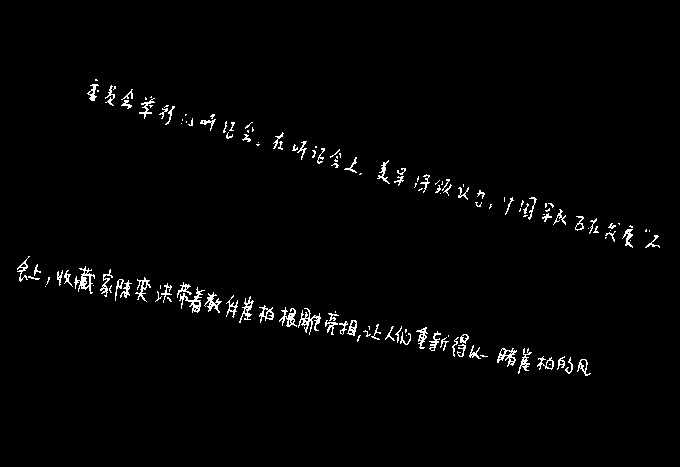 委员会举行的听证会。在听证会上,美军将领认为,中国军队正在发展“不
会上,收藏家陈奕洪带着数件崖柏根雕亮相,让人们重新得以一睹崖柏的风